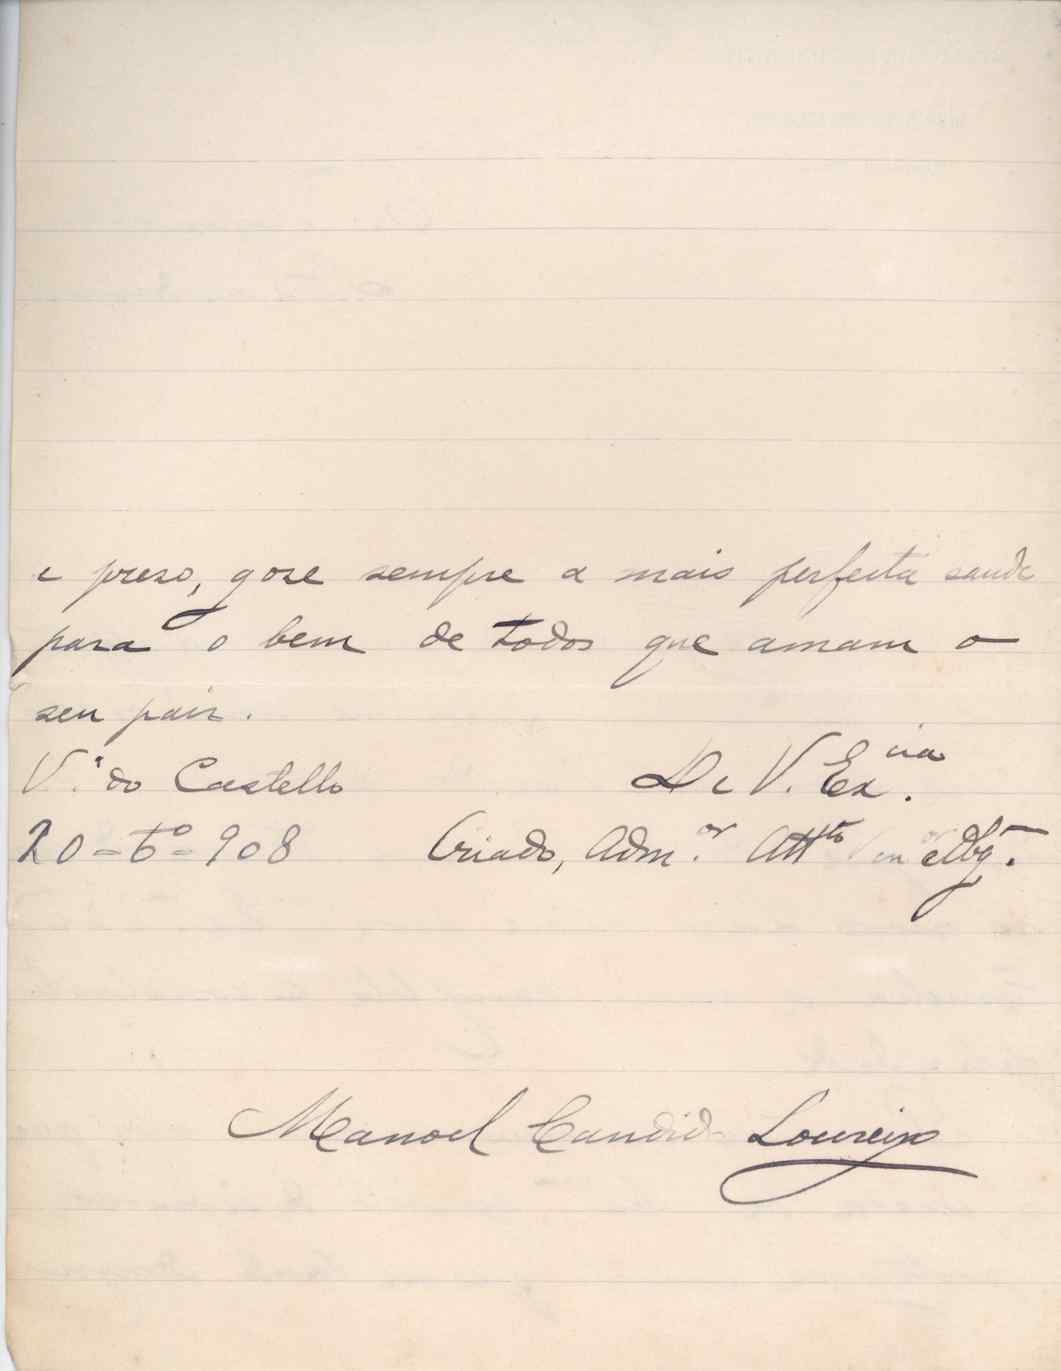 e preso, gose sempre a mais perfeita saude
para o bem de todos que amam o
seu paiz.
V.ª do Castello
De V. Ex.cia
20-6º-908
Criado, Adm.or Att.to Ven.or e Obg.
Manoel Candido Loureiro